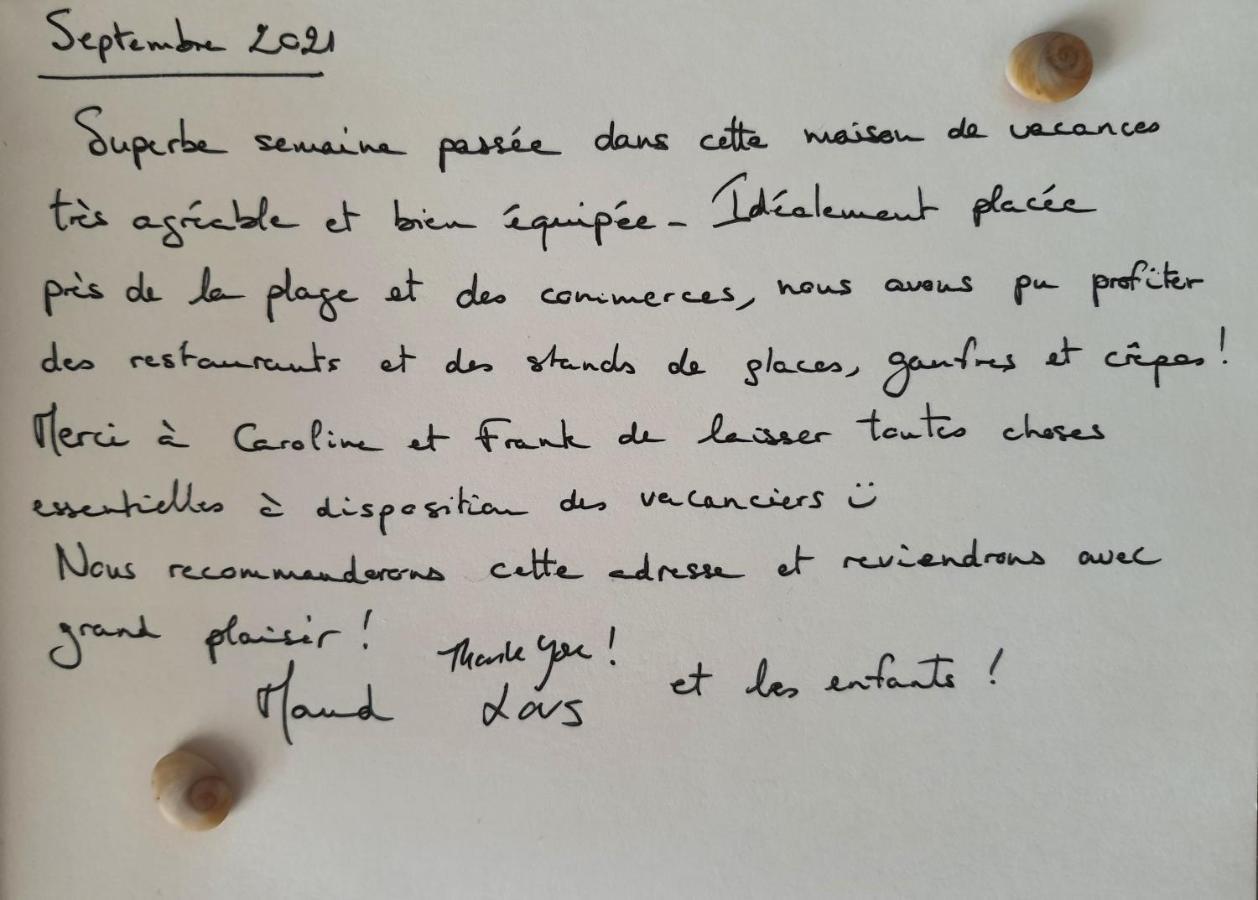 Septembre 2021
Superbe semaine passée dans cette maison de vacances
très agréable et bien équipée - Idéalement placée
près de la plage et des commerces, nous avons pu profiter
des restaurants et des stands de glaces, gaufres et crêpes !
Merci à Caroline et Frank de laisser toutes choses
essentielles à disposition des vacanciers ü
Nous recommanderons cette adresse et reviendrons avec
grand plaisir !
Thank you !
Maud Lars et les enfants !